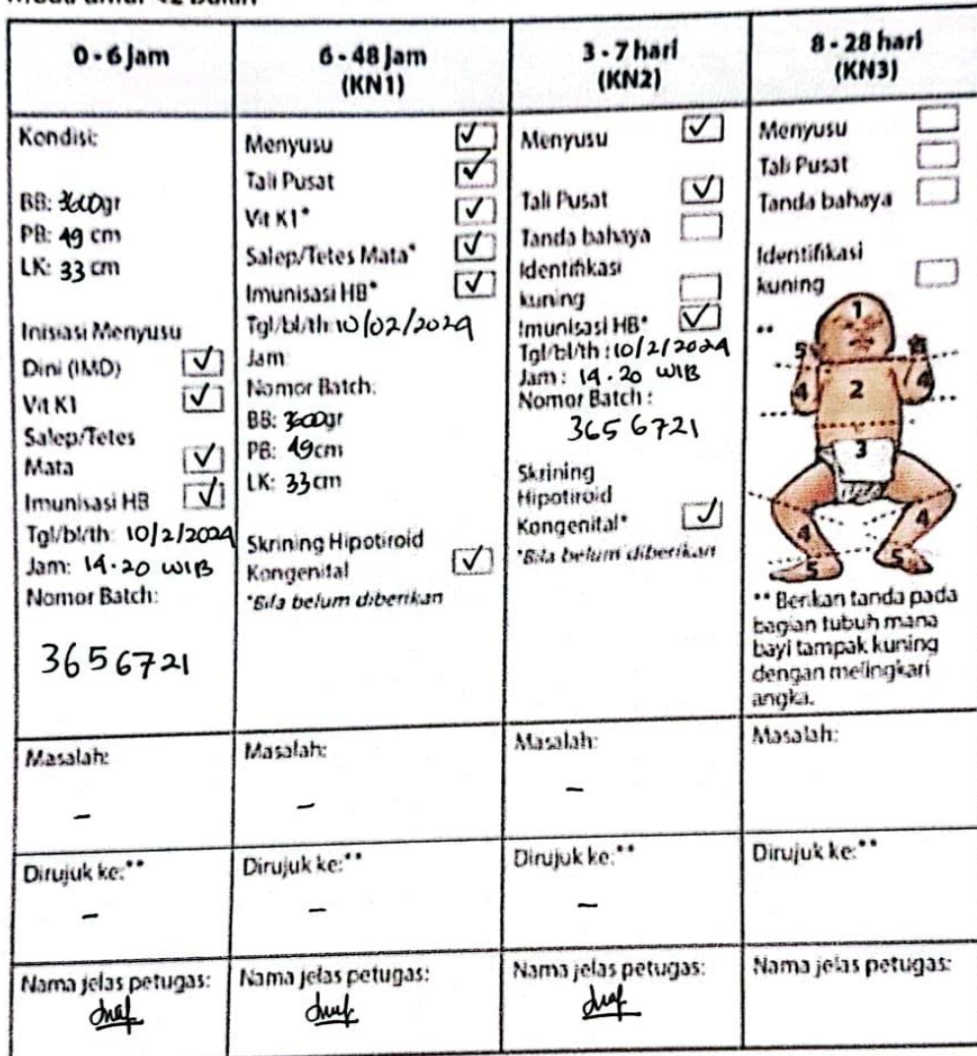 0 - 6 Jam
6 - 48 Jam
(KN1)
3 - 7 hari
(KN2)
8 - 28 hari
(KN3)
Kondisi:
BB: 3600gr
PB: 49 cm
LK: 33 cm
Inisiasi Menyusu
Dini (IMD) ✓
Vit K1 ✓
Salep/Tetes
Mata ✓
Imunisasi HB ✓
Tgl/bl/th: 10/2/2024
Jam: 14.20 WIB
Nomor Batch:
3656721
Menyusu ✓
Tali Pusat ✓
Vit K1* ✓
Salep/Tetes Mata* ✓
Imunisasi HB* ✓
Tgl/bl/th: 10/02/2024
Jam:
Nomor Batch:
BB: 3600gr
PB: 49cm
LK: 33cm
Skrining Hipotiroid
Kongenital ✓
*Bila belum diberikan
Menyusu ✓
Tali Pusat ✓
Tanda bahaya
Identifikasi
kuning
Imunisasi HB* ✓
Tgl/bl/th: 10/2/2024
Jam: 14.20 WIB
Nomor Batch:
3656721
Skrining
Hipotiroid
Kongenital* ✓
*Bila belum diberikan
Menyusu
Tali Pusat
Tanda bahaya
Identifikasi
kuning
**
1
5
4 2 4
3
4 4
5 5
** Berikan tanda pada
bagian tubuh mana
bayi tampak kuning
dengan melingkari
angka.
Masalah:
-
Masalah:
-
Masalah:
-
Masalah:
Dirujuk ke:**
-
Dirujuk ke:**
-
Dirujuk ke:**
-
Dirujuk ke:**
Nama jelas petugas:
Nama jelas petugas:
Nama jelas petugas:
Nama jelas petugas: